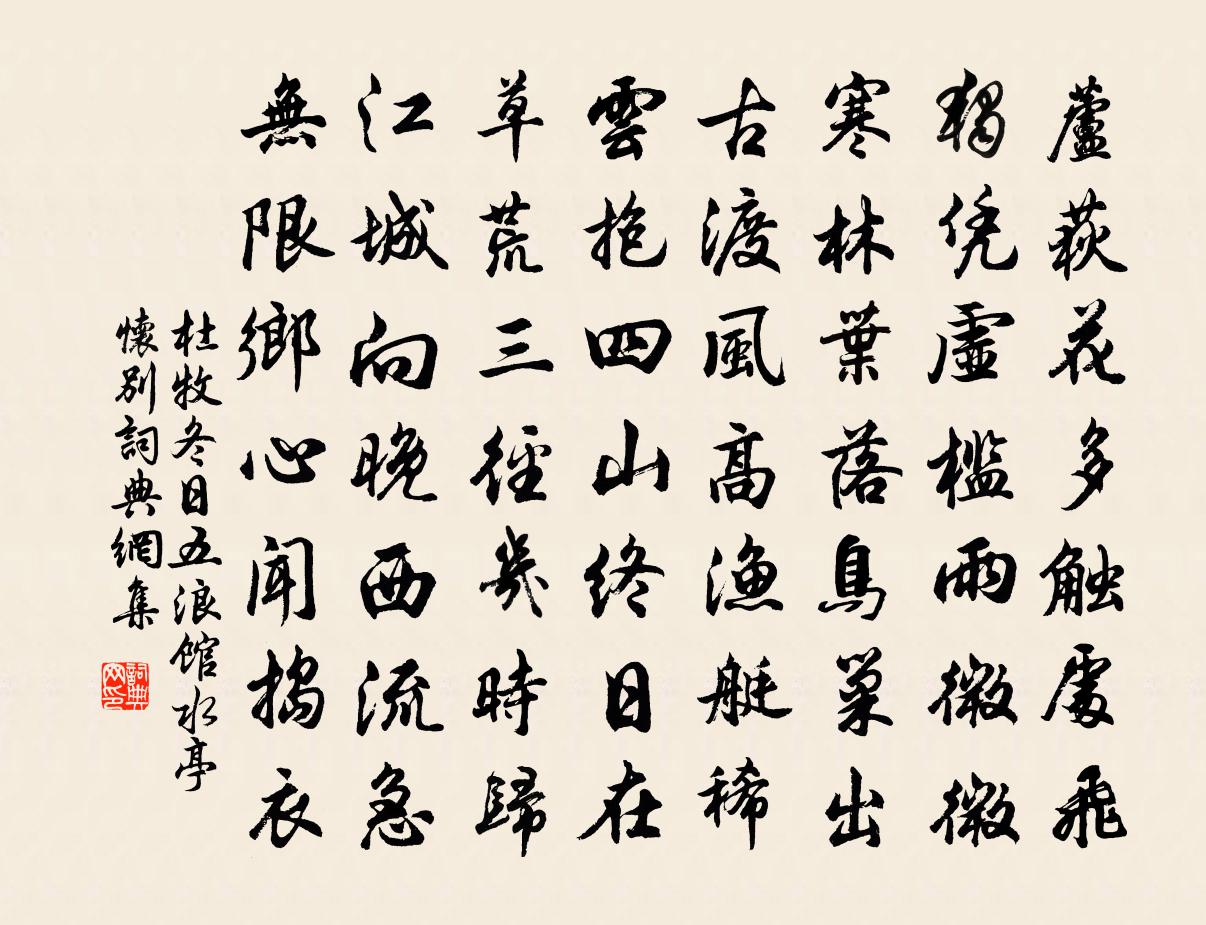 蘆荻花多触處飛
獨凭虛檻雨微微
寒林葉落鳥巢出
古渡風高漁艇稀
雲抱四山終日在
草荒三徑幾時歸
江城向晚西流急
無限鄉心聞搗衣
杜牧冬日五浪館水亭
懷別詞典網集
詞典
网印